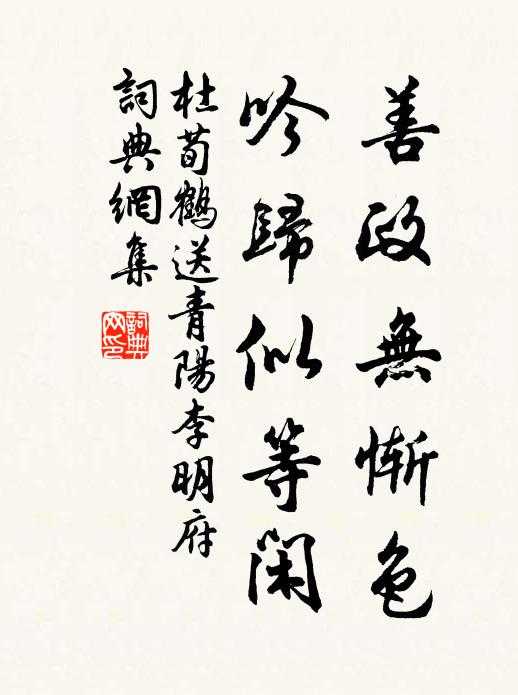 善政無慚色
吟歸似等閑
杜荀鶴送青陽李明府
詞典網集
詞典
网印